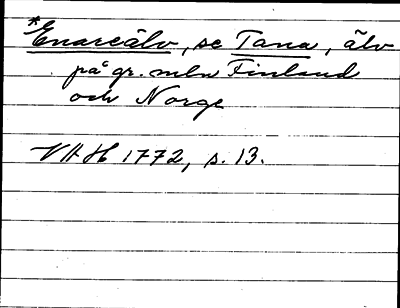 *Enareälv, se Tana, älv
på gr. mln Finland
och Norge
VAH 1772, s. 13.